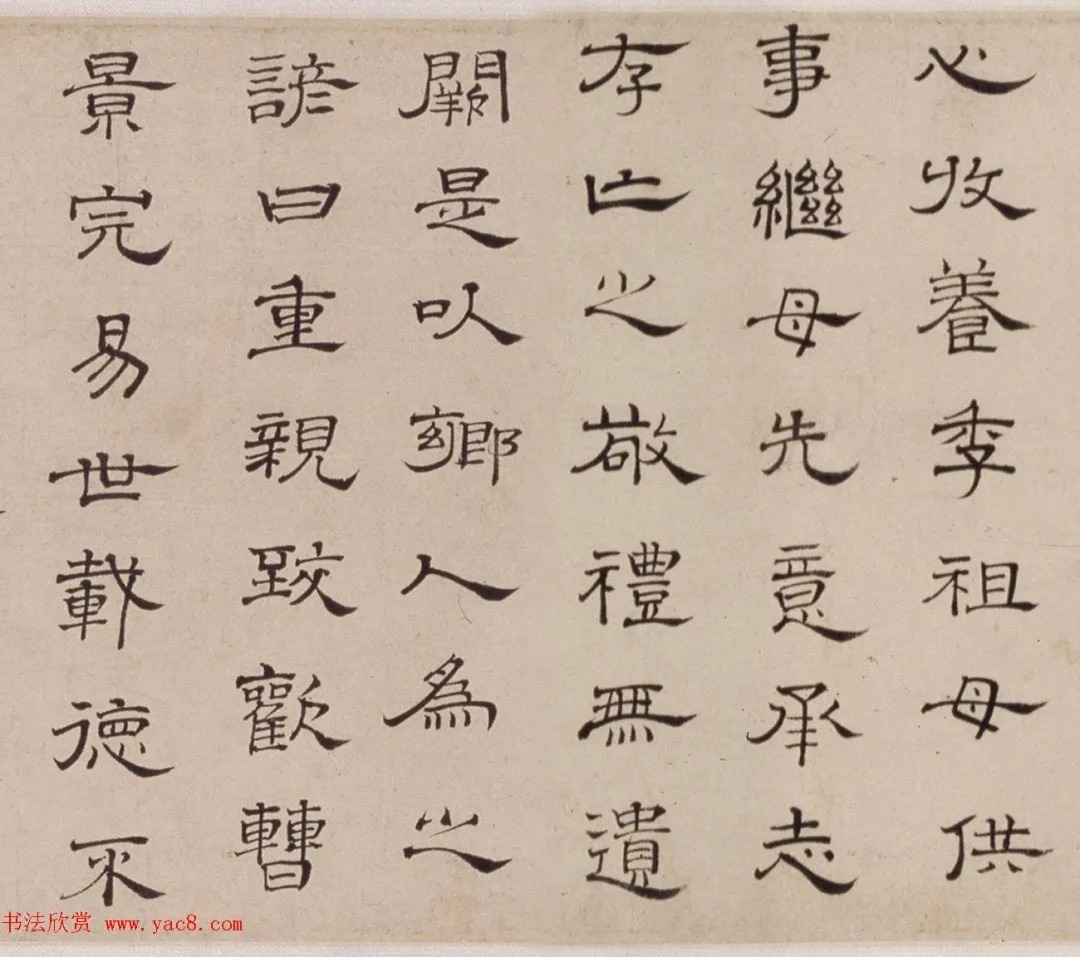 心收養季祖母供
事繼母先意承志
存亡之敬禮無遺
闕是以鄉人為之
諺曰重親致歡曹
景完易世載德不
书法欣赏 www.yac8.com